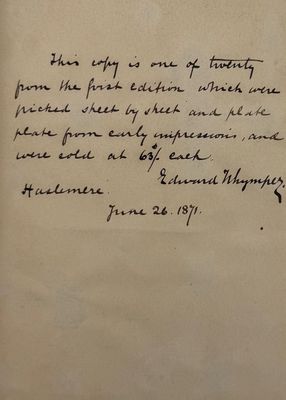 This copy is one of twenty
from the first edition which were
picked sheet by sheet and plate
plate from early impressions, and
were sold at 63/- each.
Edward Whymper.
Haslemere.
June 26. 1871.